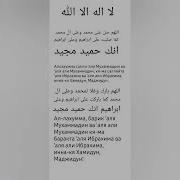 لا اله الا الله
اللهم صل على محمد وعلى ال محمد
كما صليت على ابراهيم وعلى ابراهيم
انك حميد مجيد
Аллахумма салли аля Мухаммадин ва
'аля али Мухаммадин, кя-ма саллайта
'аля Ибрахима ва 'аля али Ибрахима,
инна-кя Хамидун, Маджидун!
اللهم بارك وعلا لمحمد وعلى ال
محمد كما باركت على ابراهيم وعلى
ابراهيم انك حميد مجيد
Ал-лахумма, барик 'аля
Мухаммадин ва 'аля али
Мухаммадин кя-ма
баракта 'аля Ибрахима ва
'аля али Ибрахима,
инна-кя Хамидун,
Маджидун!